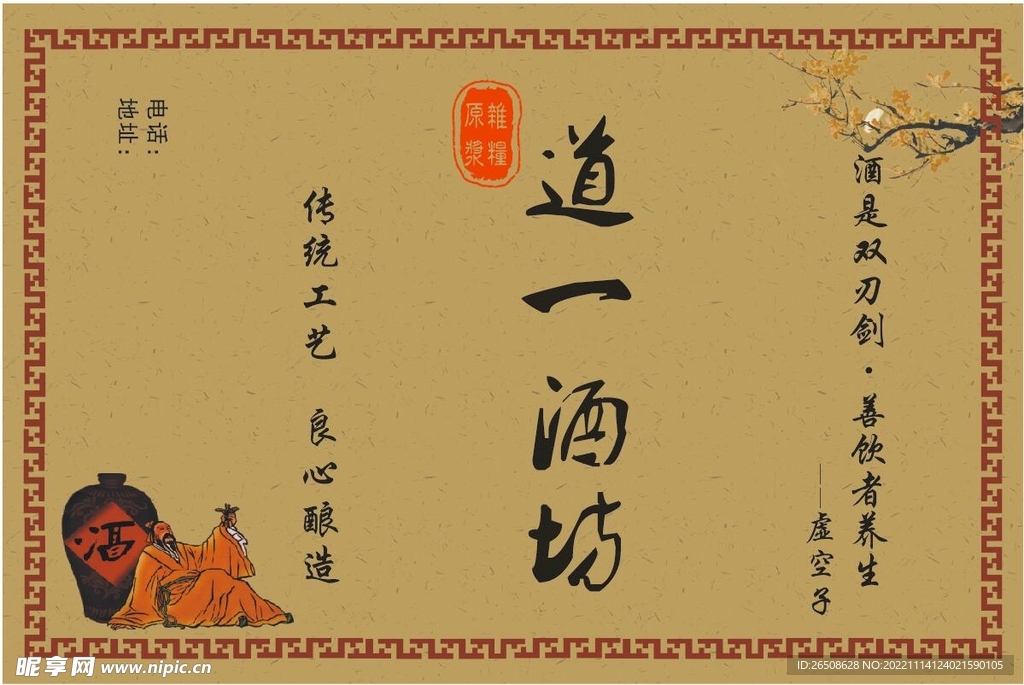 酒是双刃剑·善饮者养生
——虚空子
道一酒坊
雜糧
原漿
传统工艺 良心酿造
电话:
地址:
酒
昵享网 www.nipic.cn
ID:26508628 NO:20221114124021590105